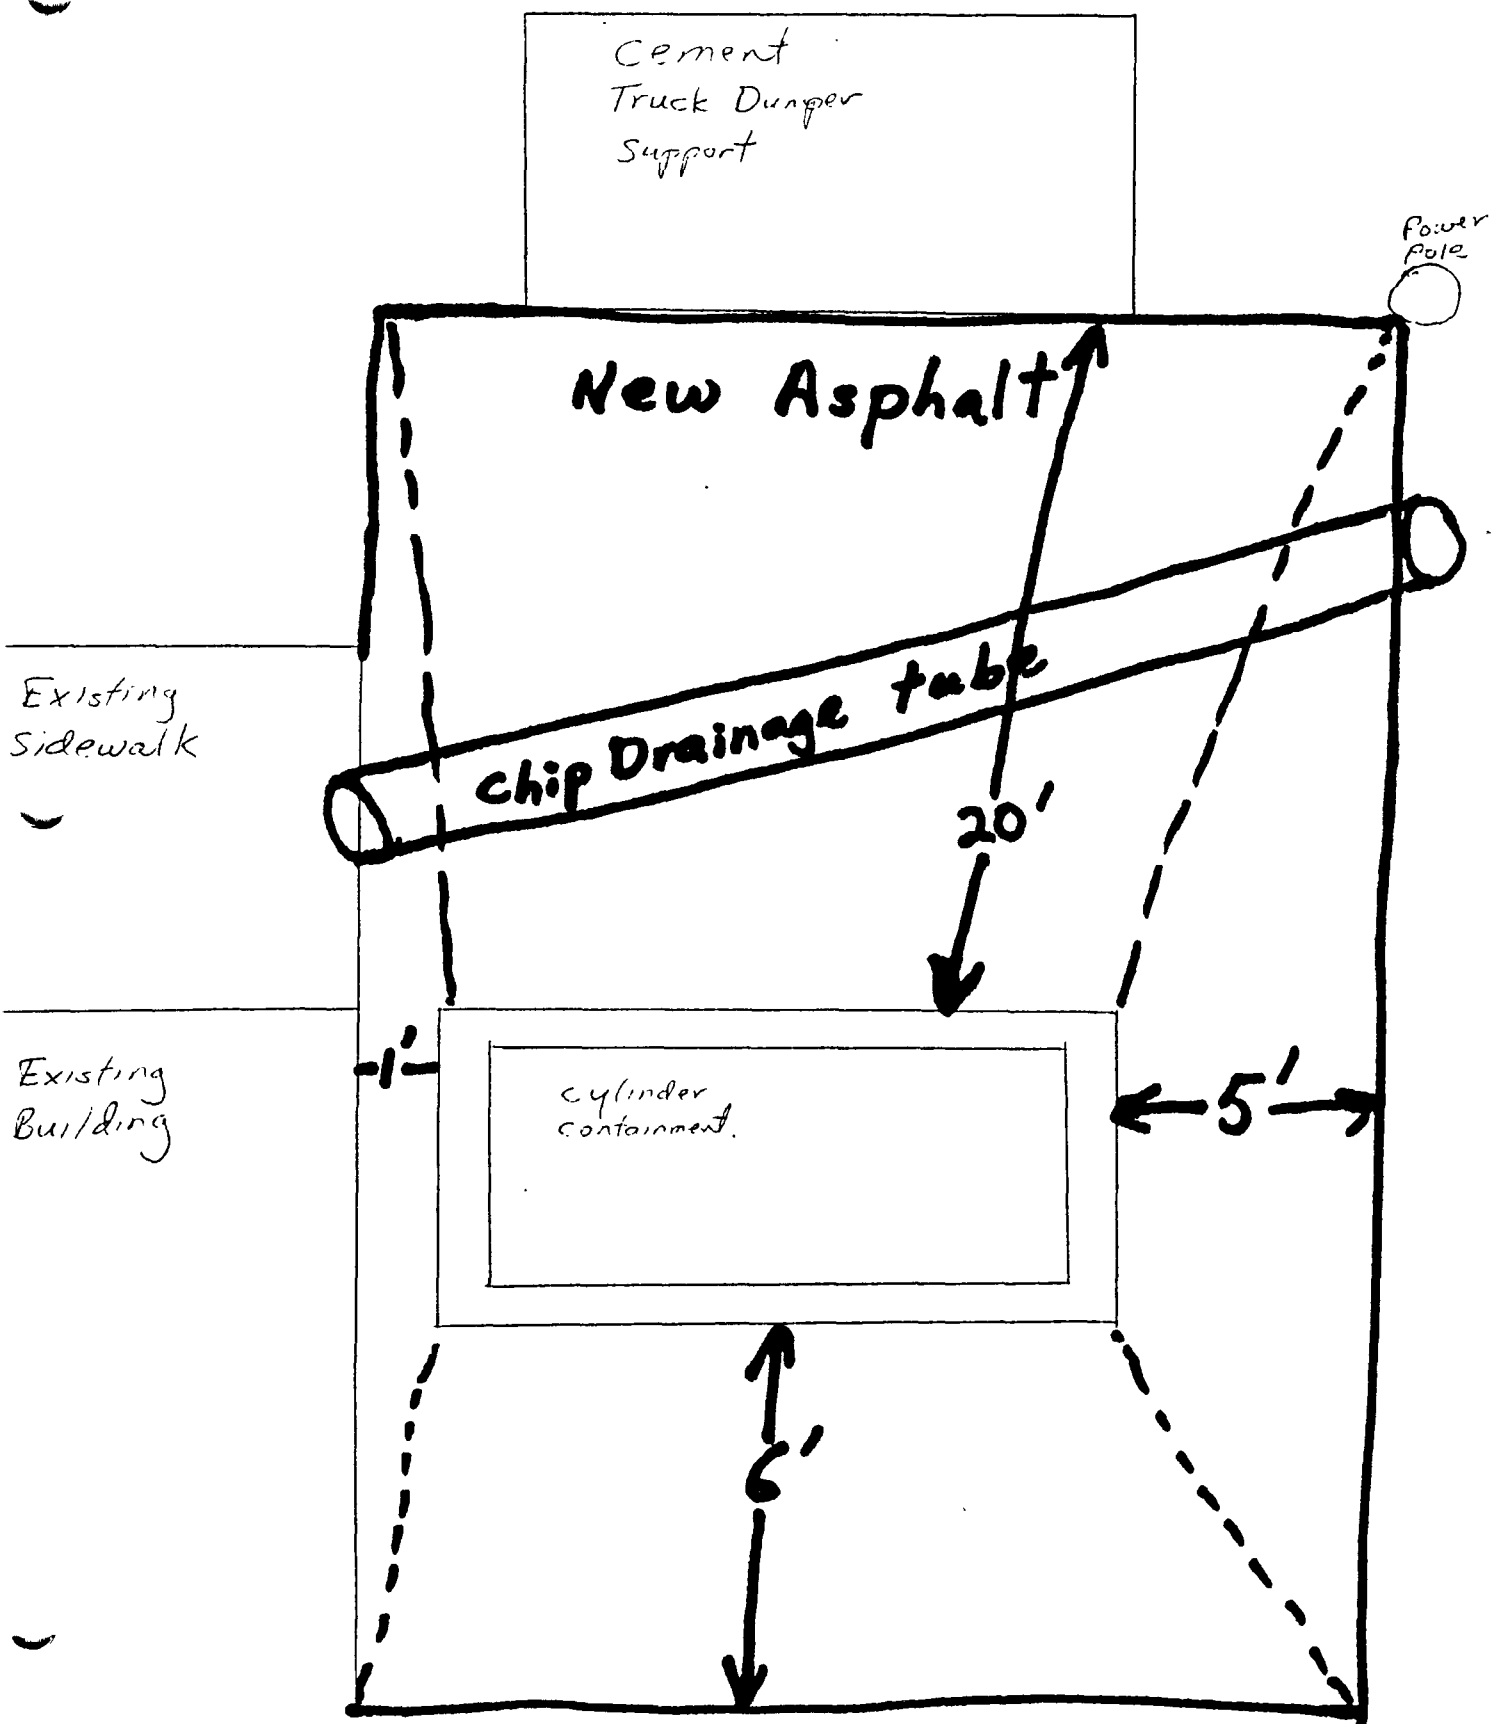 Cement
Truck Dumper
Support
Power
Pole
New Asphalt
Existing
Sidewalk
Chip Drainage tube
20'
1'
5'
Existing
Building
Cylinder
containment.
6'